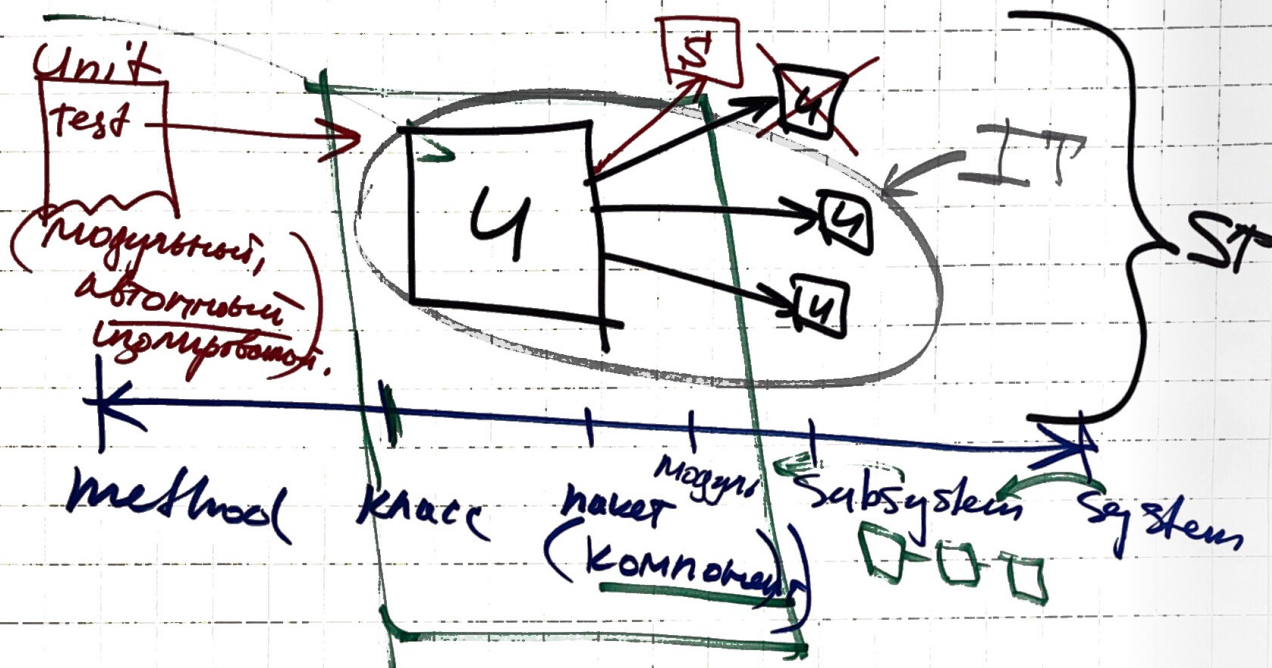 Unit
Test
(модульный,
автомный
изолированой.)
S
И
И
И
И
IT
ST
method
класс
пакет
(компонент)
модуль
Subsystem
System